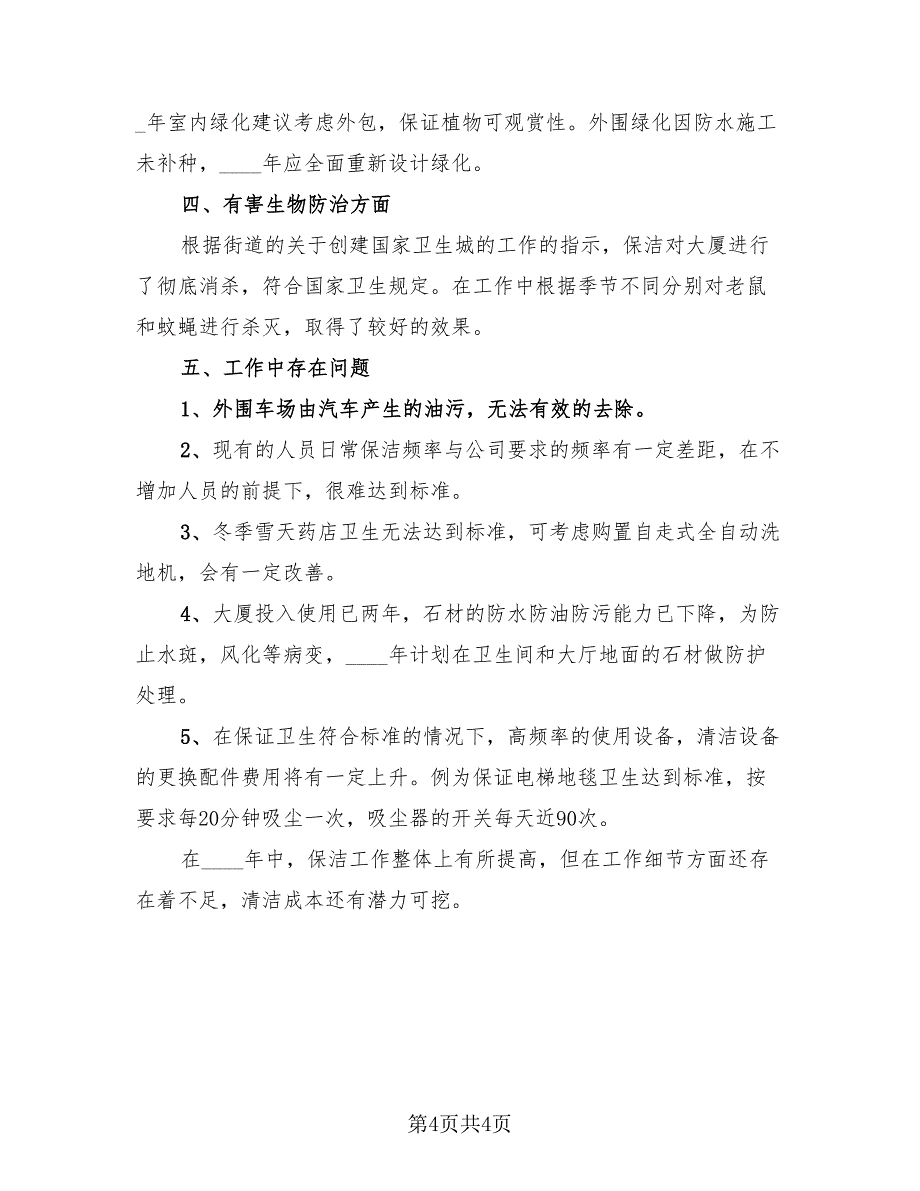 _年室内绿化建议考虑外包，保证植物可观赏性。外围绿化因防水施工
未补种，____年应全面重新设计绿化。
四、有害生物防治方面
根据街道的关于创建国家卫生城的工作的指示，保洁对大厦进行
了彻底消杀，符合国家卫生规定。在工作中根据季节不同分别对老鼠
和蚊蝇进行杀灭，取得了较好的效果。
五、工作中存在问题
1、外围车场由汽车产生的油污，无法有效的去除。
2、现有的人员日常保洁频率与公司要求的频率有一定差距，在不
增加人员的前提下，很难达到标准。
3、冬季雪天药店卫生无法达到标准，可考虑购置自走式全自动洗
地机，会有一定改善。
4、大厦投入使用已两年，石材的防水防油防污能力已下降，为防
止水斑，风化等病变，____年计划在卫生间和大厅地面的石材做防护
处理。
5、在保证卫生符合标准的情况下，高频率的使用设备，清洁设备
的更换配件费用将有一定上升。例为保证电梯地毯卫生达到标准，按
要求每20分钟吸尘一次，吸尘器的开关每天近90次。
在____年中，保洁工作整体上有所提高，但在工作细节方面还存
在着不足，清洁成本还有潜力可挖。
第4页共4页